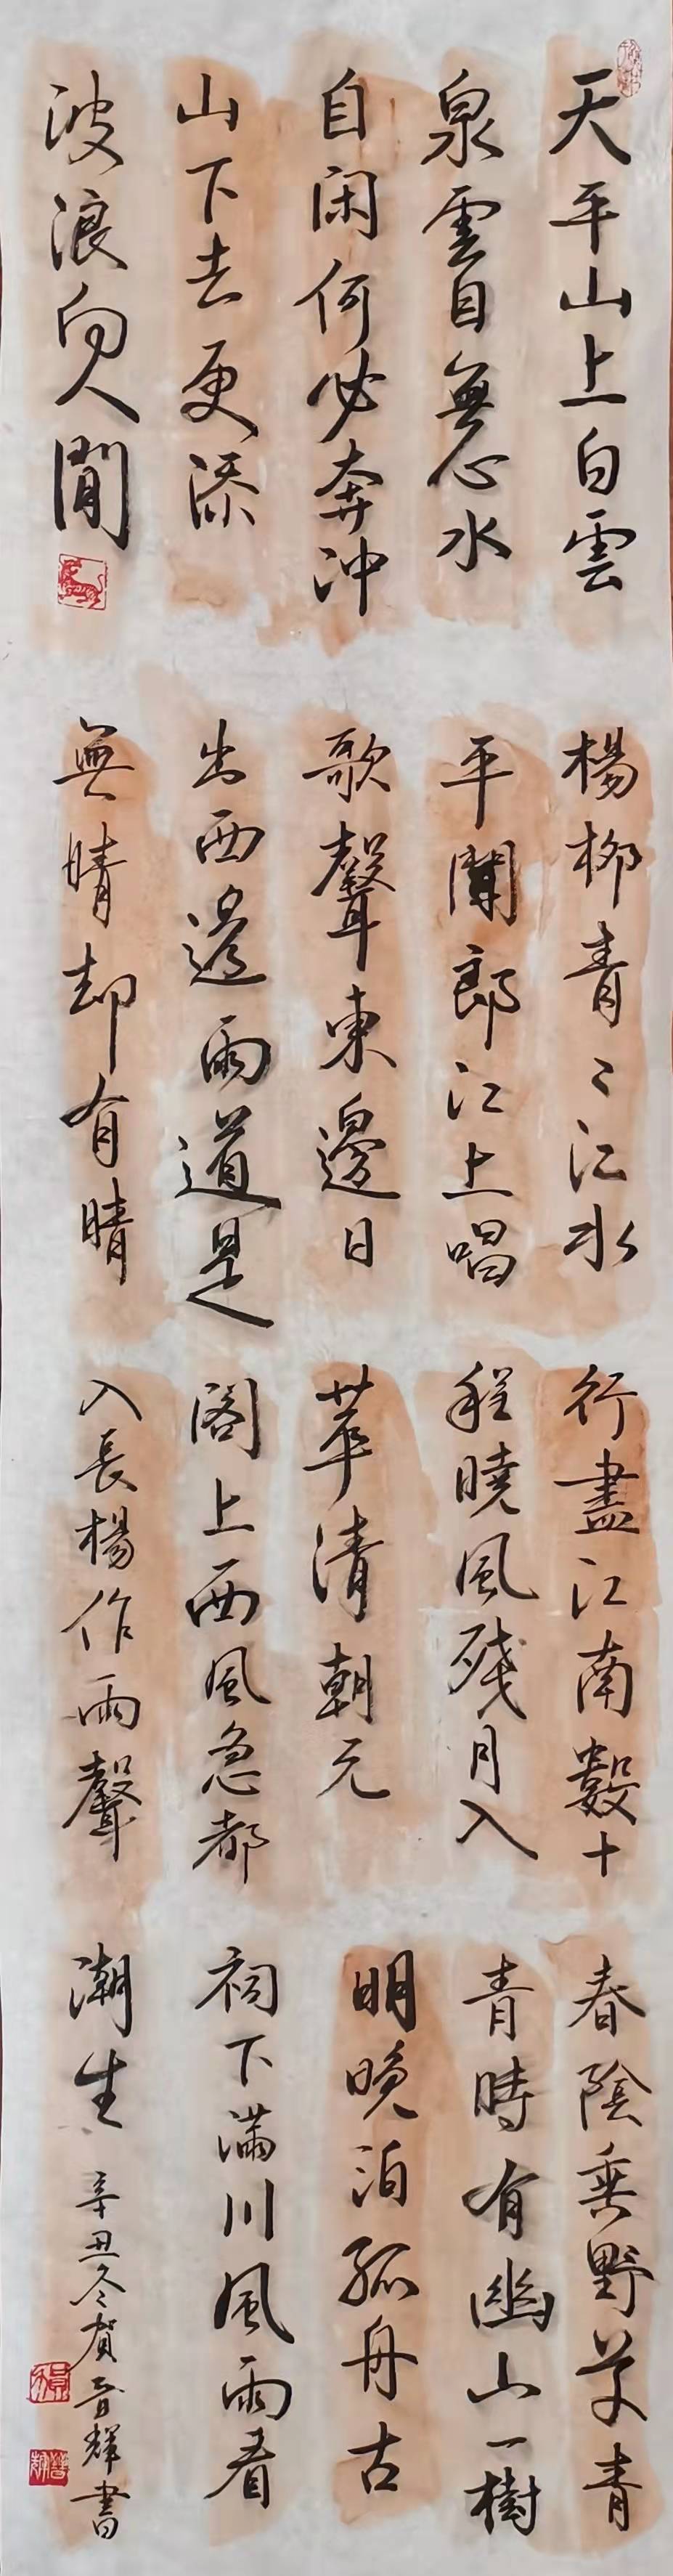 天平山上白雲
泉雲自無心水
自闲何必奔沖
山下去更添
波浪向人間
楊柳青〻江水
平聞郎江上唱
歌聲東邊日
出西邊雨道是
無晴却有晴
行盡江南數十
程曉風殘月入
華清朝元
閣上西風急都
入長楊作雨聲
春陰垂野草青
青時有幽山一樹
明晚泊孤舟古
祠下滿川風雨看
潮生
辛丑冬賀晉輝書